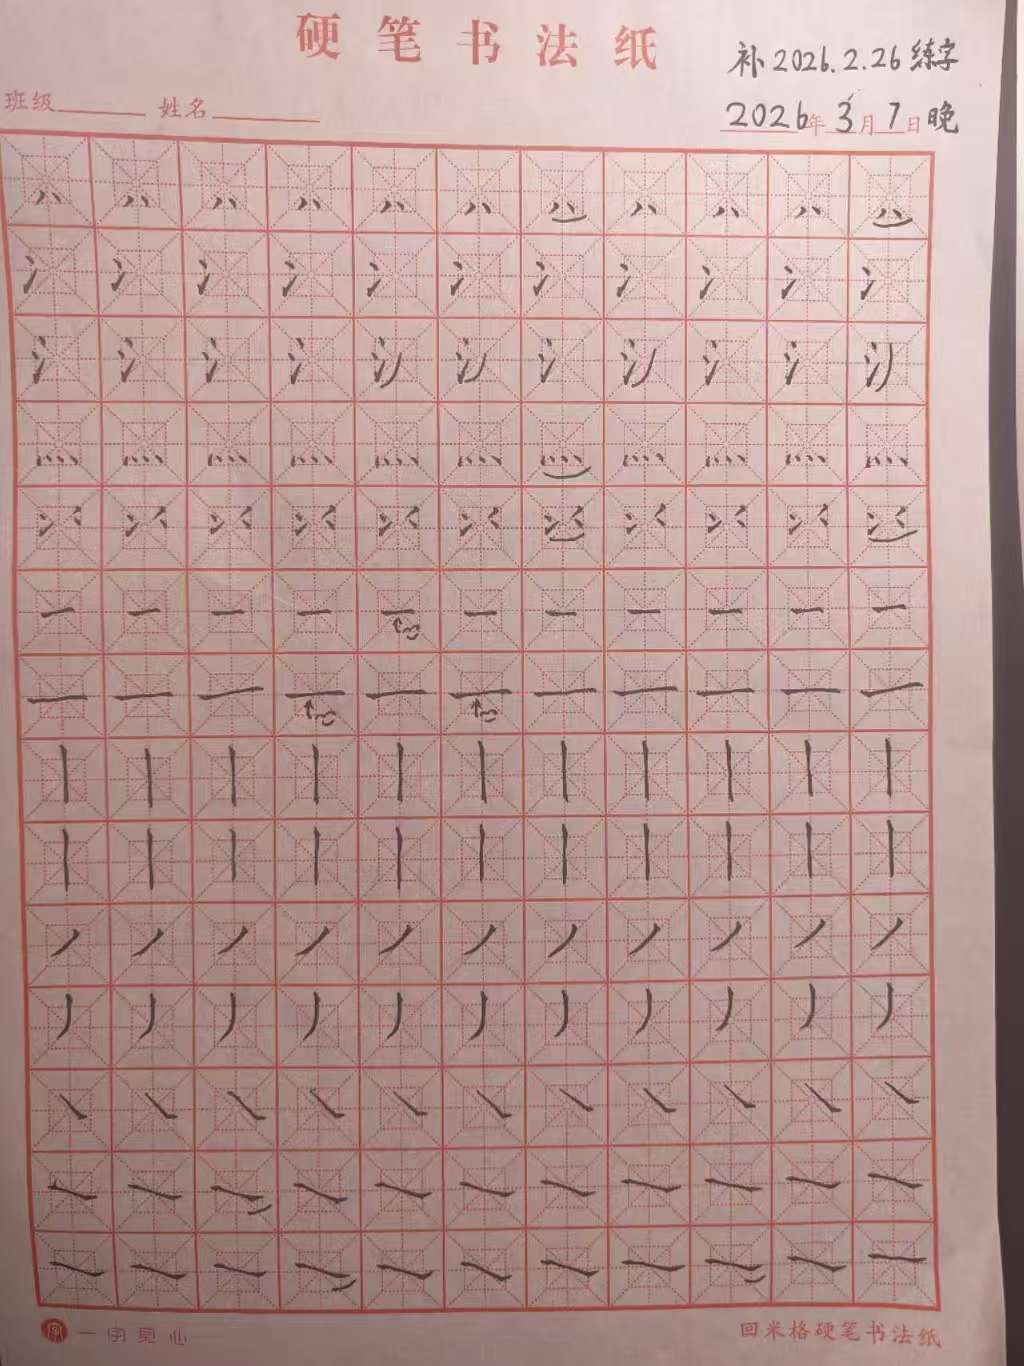 硬笔书法纸
补2026.2.26练字
班级 姓名
2026年3月7日晚
八 八 八 八 八 八 八 八 八 八 八
氵 氵 氵 氵 氵 氵 氵 氵 氵 氵 氵
氵 氵 氵 氵 氵 氵 氵 氵 氵 氵 氵
灬 灬 灬 灬 灬 灬 灬 灬 灬 灬 灬
一 一 一 一 一 一 一 一 一 一 一
一 一 一 一 一 一 一 一 一 一 一
丨 丨 丨 丨 丨 丨 丨 丨 丨 丨 丨
丨 丨 丨 丨 丨 丨 丨 丨 丨 丨 丨
丿 丿 丿 丿 丿 丿 丿 丿 丿 丿 丿
丿 丿 丿 丿 丿 丿 丿 丿 丿 丿 丿
㇏ ㇏ ㇏ ㇏ ㇏ ㇏ ㇏ ㇏ ㇏ ㇏ ㇏
㇏ ㇏ ㇏ ㇏ ㇏ ㇏ ㇏ ㇏ ㇏ ㇏ ㇏
㇏ ㇏ ㇏ ㇏ ㇏ ㇏ ㇏ ㇏ ㇏ ㇏ ㇏
一字见心
回米格硬笔书法纸